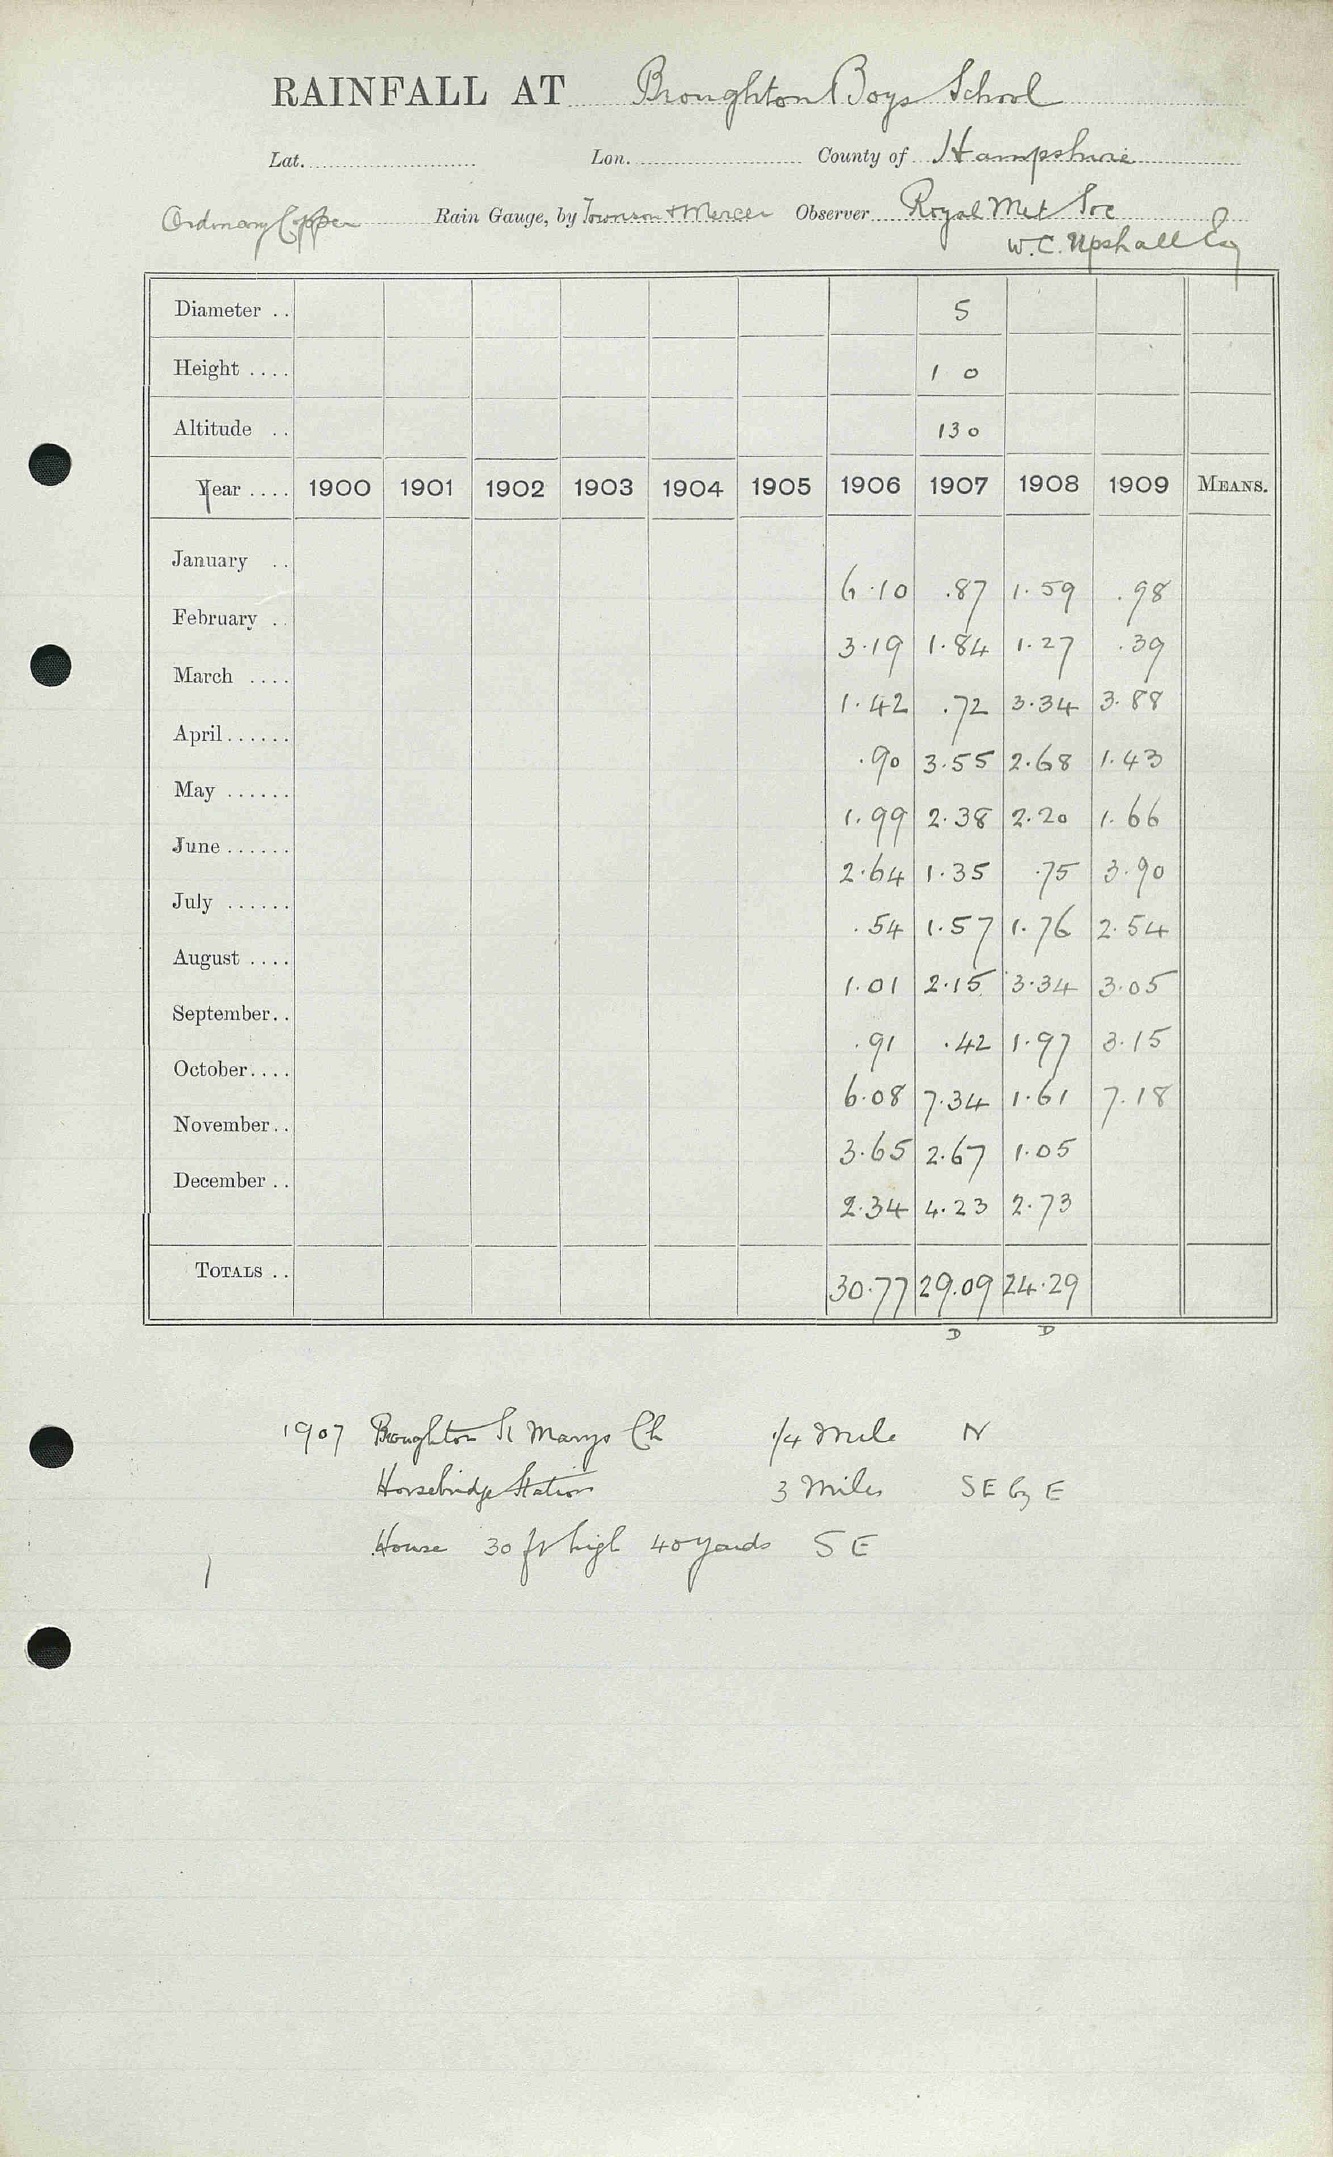 RAINFALL AT Broughton Boys School
Lat. Lon. County of Hampshire
Ordinary Copper Rain Gauge, by Townson & Mercer Observer Royal Met Soc
W.C. Upshall Esq
Diameter .. 5
Height .... 1 0
Altitude .. 130
Year .... 1900 1901 1902 1903 1904 1905 1906 1907 1908 1909 MEANS.
January .. 6.10 .87 1.59 .98
February .. 3.19 1.84 1.27 .39
March .... 1.42 .72 3.34 3.88
April ...... .90 3.55 2.68 1.43
May ...... 1.99 2.38 2.20 1.66
June ...... 2.64 1.35 .75 3.90
July ...... .54 1.57 1.76 2.54
August .... 1.01 2.15 3.34 3.05
September .. .91 .42 1.97 3.15
October .... 6.08 7.34 1.61 7.18
November .. 3.65 2.67 1.05
December .. 2.34 4.23 2.73
TOTALS .. 30.77 29.09 24.29
D D
1907 Broughton St Marys Ch 1/4 Mile N
Horsebridge Station 3 Miles SE by E
House 30 ft high 40 yards SE